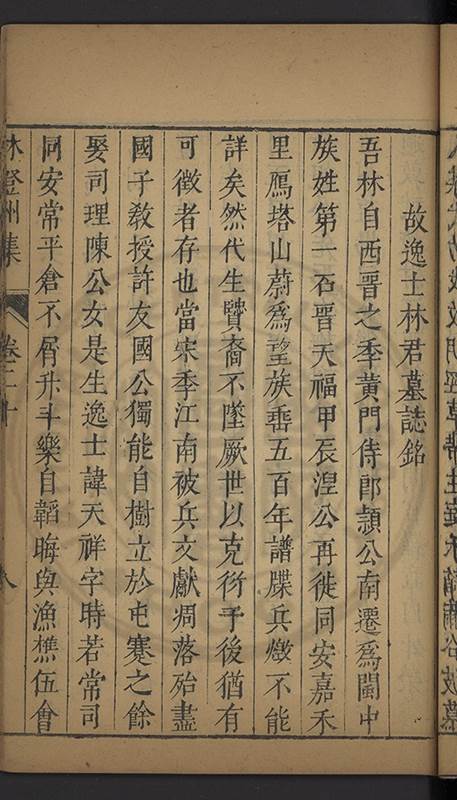 故逸士林君墓誌銘
吾林自西晋之季黄門侍郎頴公南遷爲閩中
族姓第一石晋天福甲辰湼公再徙同安嘉禾
里鴈塔山蔚爲望族垂五百年譜牒兵燬不能
詳矣然代生賢裔不墜厥世以克衍于後猶有
可徵者存也當宋季江南被兵文獻凋落殆盡
國子敎授許友國公獨能自樹立於屯蹇之餘
娶司理陳公女是生逸士諱天祥字時若常司
同安常平倉不屑升斗樂自韜晦與漁樵伍會
林登州集
卷二十
八